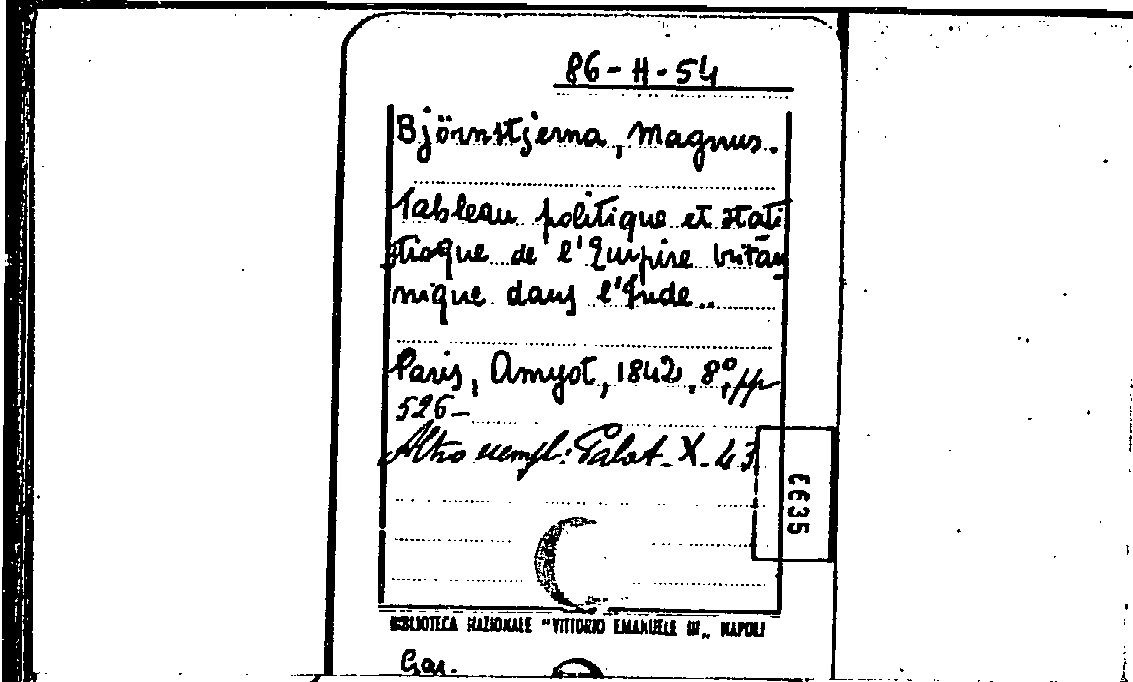 86-H-54
Björnstjerna, Magnus.
Tableau politique et stati
stique de l'Empire britan
nique dans l'Inde..
Paris, Amyot, 1842, 8°, pp
526-
Altro esempl: Palat. X. 43
6635
BIBLIOTECA NAZIONALE "VITTORIO EMANUELE III„ NAPOLI
Gar.